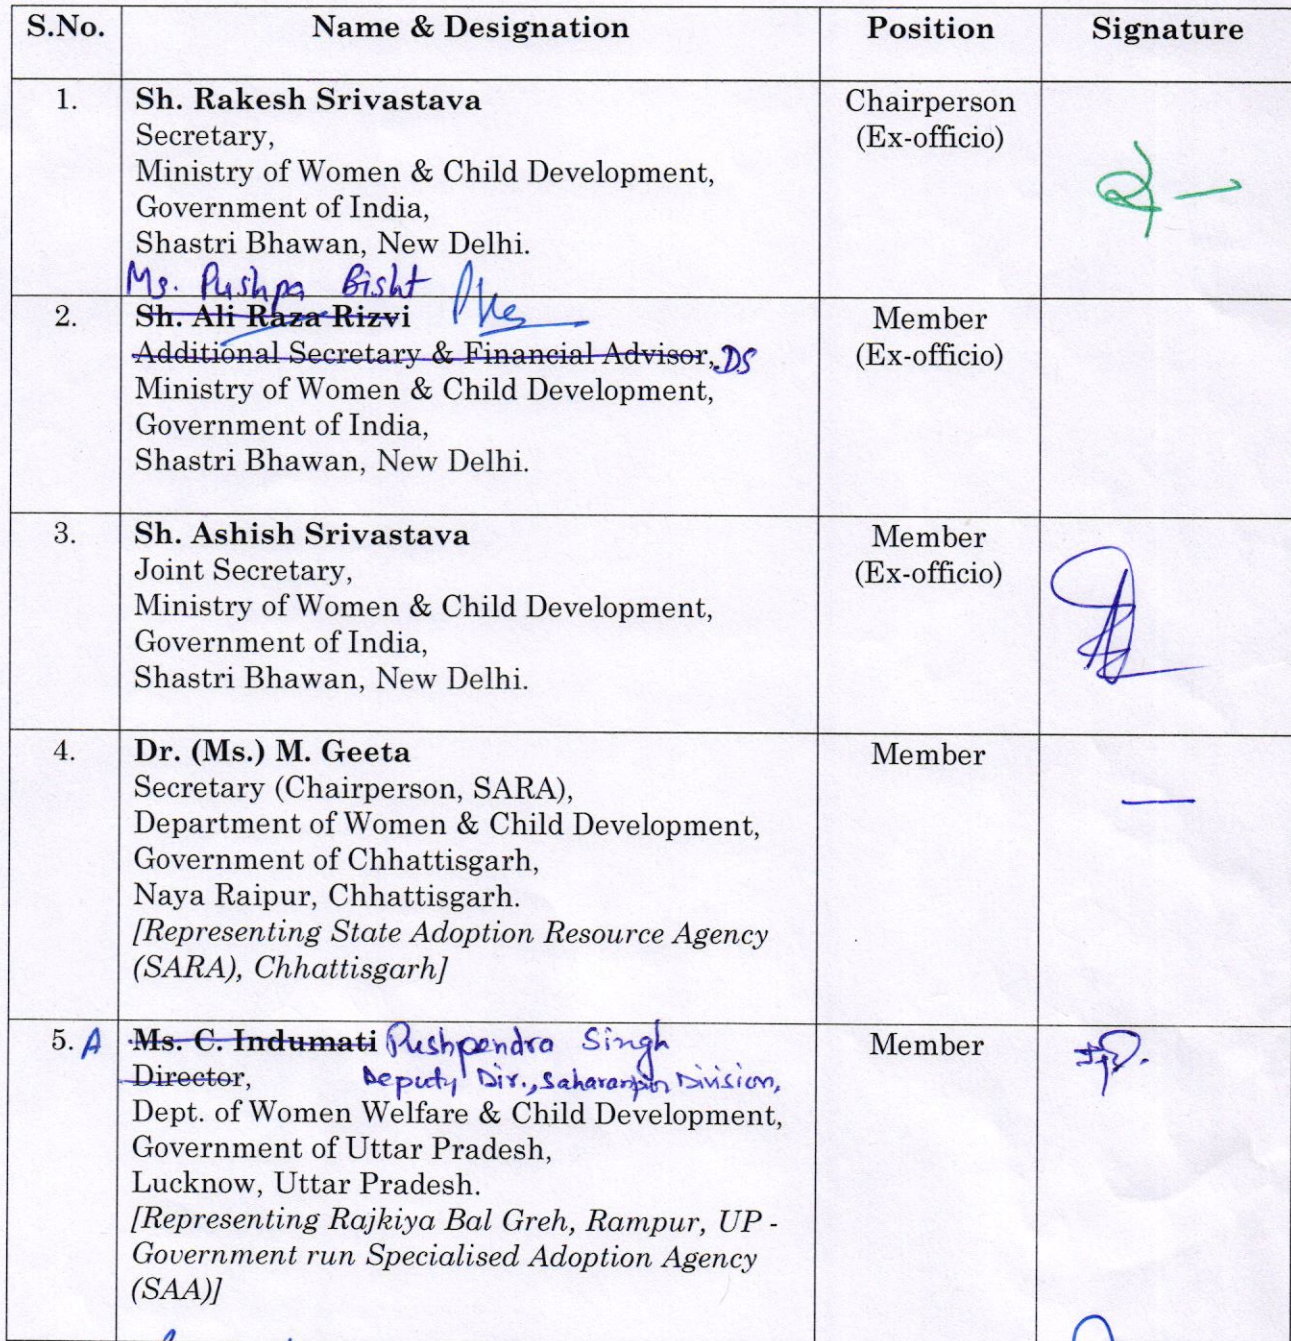 S.No. Name & Designation Position Signature
1. Sh. Rakesh Srivastava Chairperson
Secretary, (Ex-officio)
Ministry of Women & Child Development,
Government of India,
Shastri Bhawan, New Delhi.
Ms. Pushpa Bisht
2. Sh. Ali Raza Rizvi Member
Additional Secretary & Financial Advisor, DS (Ex-officio)
Ministry of Women & Child Development,
Government of India,
Shastri Bhawan, New Delhi.
3. Sh. Ashish Srivastava Member
Joint Secretary, (Ex-officio)
Ministry of Women & Child Development,
Government of India,
Shastri Bhawan, New Delhi.
4. Dr. (Ms.) M. Geeta Member
Secretary (Chairperson, SARA),
Department of Women & Child Development,
Government of Chhattisgarh,
Naya Raipur, Chhattisgarh.
[Representing State Adoption Resource Agency
(SARA), Chhattisgarh]
5. A Ms. C. Indumati Pushpendra Singh Member
Director, Deputy Dir., Saharanpur Division,
Dept. of Women Welfare & Child Development,
Government of Uttar Pradesh,
Lucknow, Uttar Pradesh.
[Representing Rajkiya Bal Greh, Rampur, UP -
Government run Specialised Adoption Agency
(SAA)]